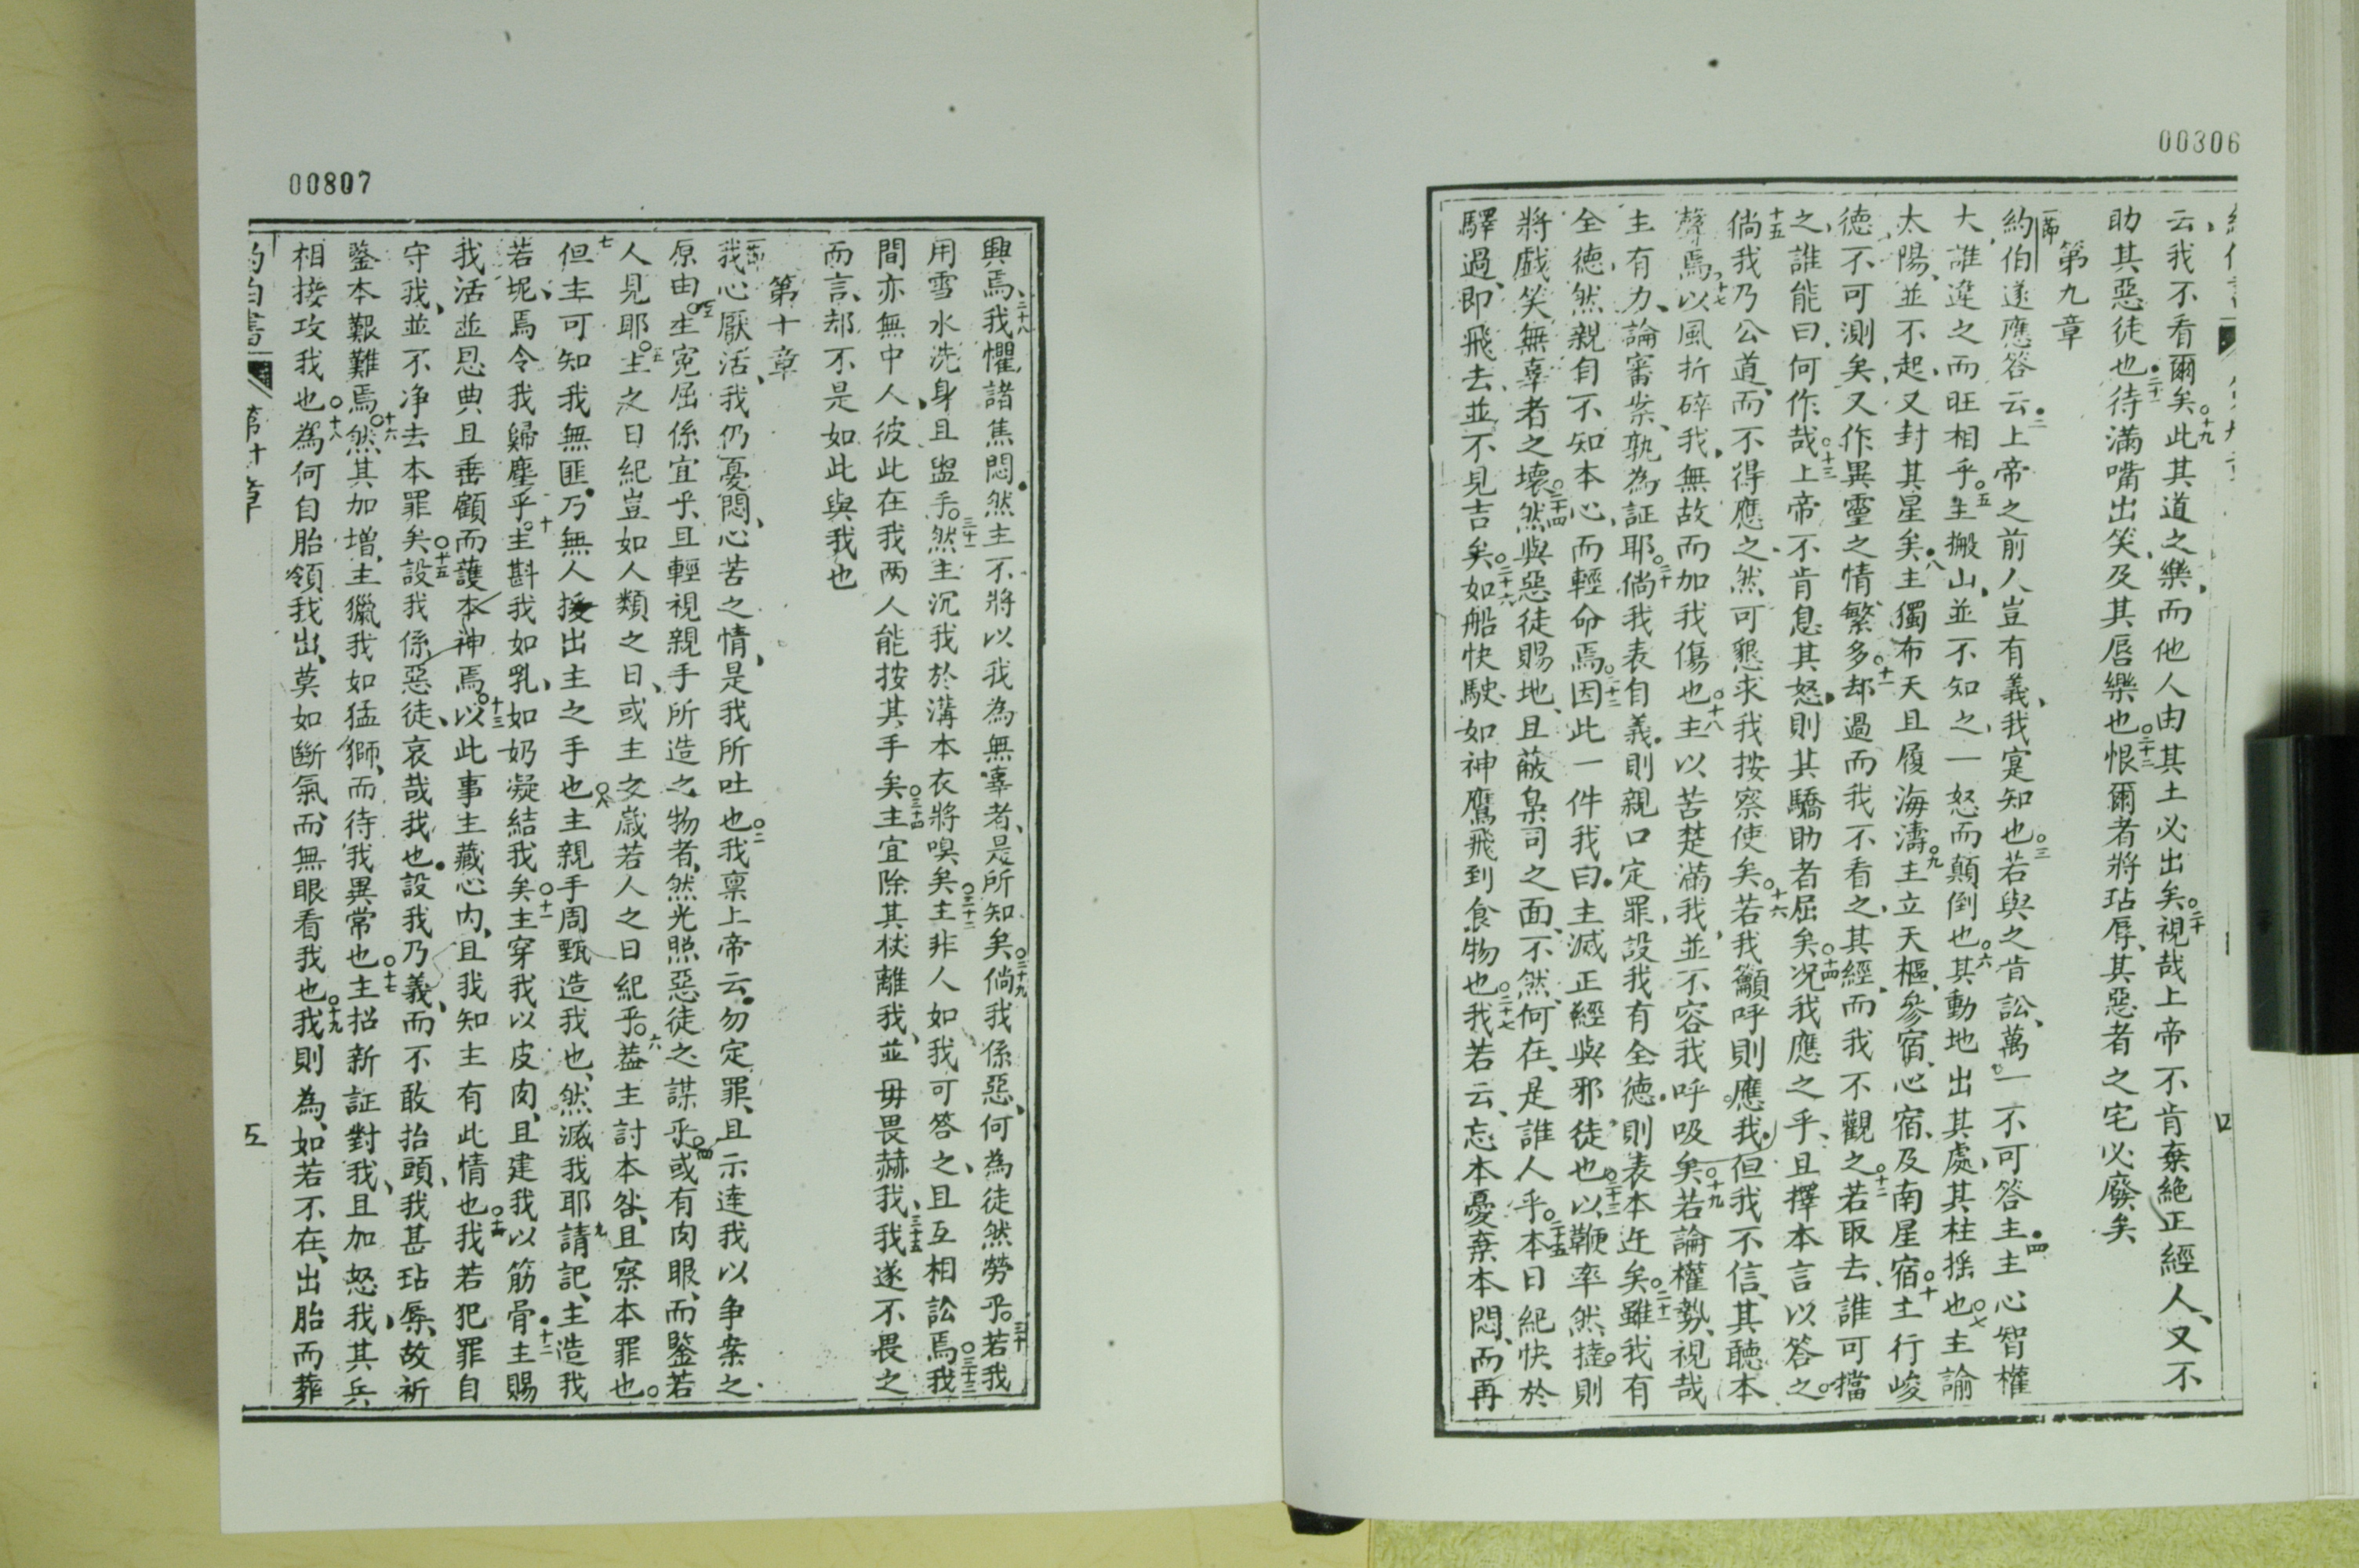 00306
云我不看爾矣十九此其道之樂而他人由其土必出矣二十視哉上帝不肯棄絶正經人又不
助其惡徒也二十一待滿嘴出笑及其唇樂也二十二恨爾者將玷辱其惡者之宅必廢矣
第九章
一節約伯遂應答云二上帝之前人豈有義我寔知也三若與之肯訟萬一不可答主四主心智權
大誰違之而旺相乎五主搬山並不知之一怒而顛倒也六其動地出其處其柱摇也七主諭
太陽並不起又封其星矣八主獨布天且履海濤九主立天樞參宿心宿及南星宿十主行峻
德不可測矣又作異靈之情繁多十一却過而我不看之其經而我不觀之十二若取去誰可擋
之誰能曰何作哉十三上帝不肯息其怒則其驕助者屈矣十四况我應之乎且擇本言以答之
十五倘我乃公道而不得應之然可懇求我按察使矣十六若我籲呼則應我但我不信其聽本
聲焉十七以風折碎我無故而加我傷也十八主以苦楚滿我並不容我呼吸矣十九若論權勢視哉
主有力論審案孰為証耶二十倘我表自義則親口定罪設我有全德則表本迕矣二十一雖我有
全德然親自不知本心而輕命焉二十二因此一件我曰主滅正經與邪徒也二十三以鞭率然撻則
將戲笑無辜者之壞二十四然與惡徒賜地且蔽臬司之面不然何在是誰人乎二十五本日紀快於
驛過即飛去並不見吉矣二十六如船快駛如神鷹飛到食物也二十七我若云忘本憂棄本悶而再
00807
興焉二十八我懼諸焦悶然主不將以我為無辜者是所知矣二十九倘我係惡何為徒然勞乎三十若我
用雪水洗身且盥手三十一然主沉我於溝本衣將嗅矣三十二主非人如我可答之且互相訟焉三十三我
間亦無中人彼此在我两人能按其手矣三十四主宜除其杖離我並毋畏赫我三十五我遂不畏之
而言却不是如此與我也
第十章
一節我心厭活我仍憂悶心苦之情是我所吐也二我禀上帝云勿定罪且示達我以争案之
原由三主寃屈係宜乎且輕視親手所造之物者然光照惡徒之謀乎四或有肉眼而鑒若
人見耶五主之日紀豈如人類之日或主之歲若人之日紀乎六葢主討本咎且察本罪也
七但主可知我無匪乃無人援出主之手也八主親手周甄造我也然滅我耶九請記主造我
若坭焉令我歸塵乎十主斟我如乳如奶凝結我矣十一主穿我以皮肉且建我以筋骨十二主賜
我活並恩典且垂顧而護本神焉十三以此事主藏心内且我知主有此情也十四我若犯罪自
守我並不净去本罪矣十五設我係惡徒哀哉我也設我乃義而不敢抬頭我甚玷辱故祈
鑒本艱難焉十六然其加增主獵我如猛獅而待我異常也十七主招新証對我且加怒我其兵
相接攻我也十八為何自胎領我出莫如斷氣而無眼看我也十九我則為如若不在出胎而葬
約伯書 第十章 五